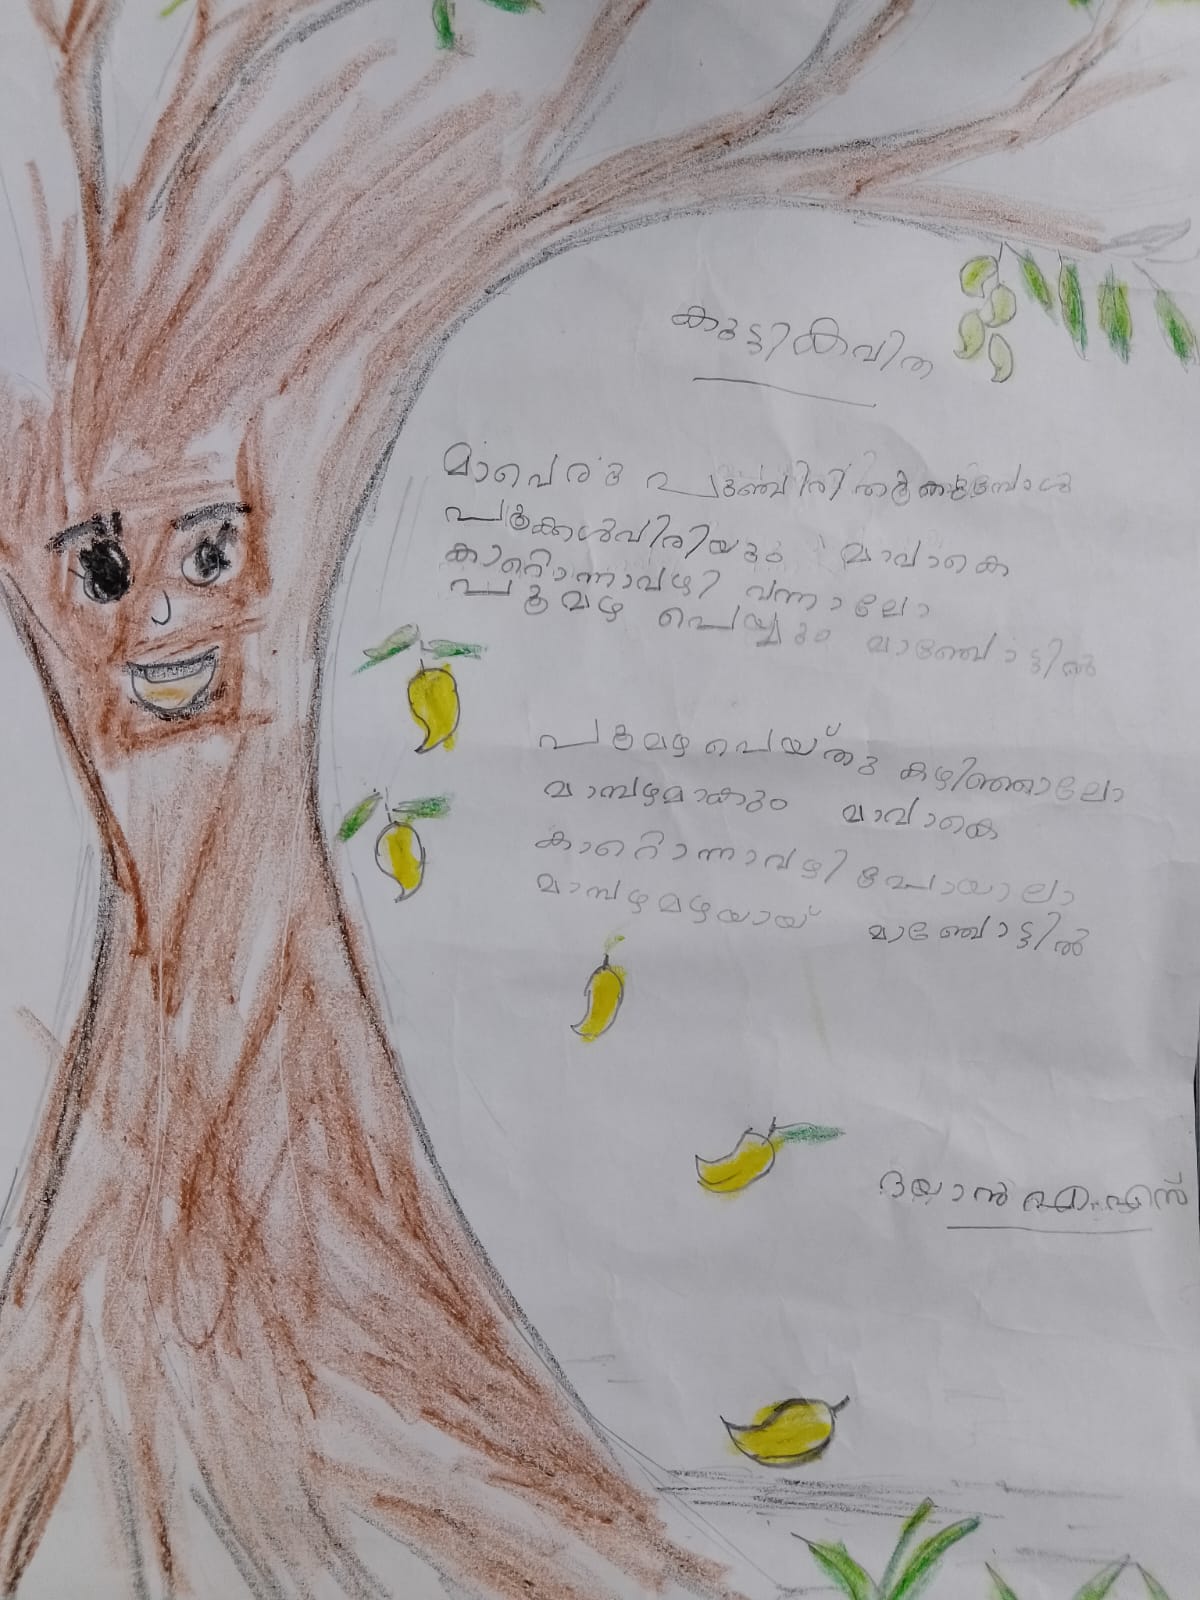 കുട്ടികവിത
മാവെരു പുഞ്ചിരി തൂകുമ്പോൾ
പൂക്കൾവിരിയും മാവാകെ
കാറ്റൊന്നാവഴി വന്നാലോ
പൂമഴ പെയ്യും മാഞ്ചോട്ടിൽ
പൂമഴ പെയ്തു കഴിഞ്ഞാലോ
മാമ്പഴമാകും മാവാകെ
കാറ്റൊന്നാവഴി പോയാലാ
മാമ്പഴമഴയായ് മാഞ്ചോട്ടിൽ
ദയാൻ എ.എസ്